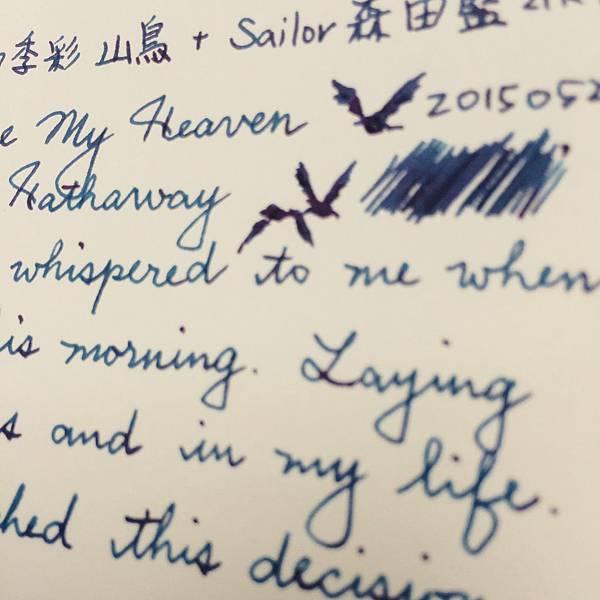 季彩 山鳥 + Sailor 森田藍
e My Heaven 2015052
Hathaway
whispered to me when
is morning. Laying
s and in my life.
hed this decision